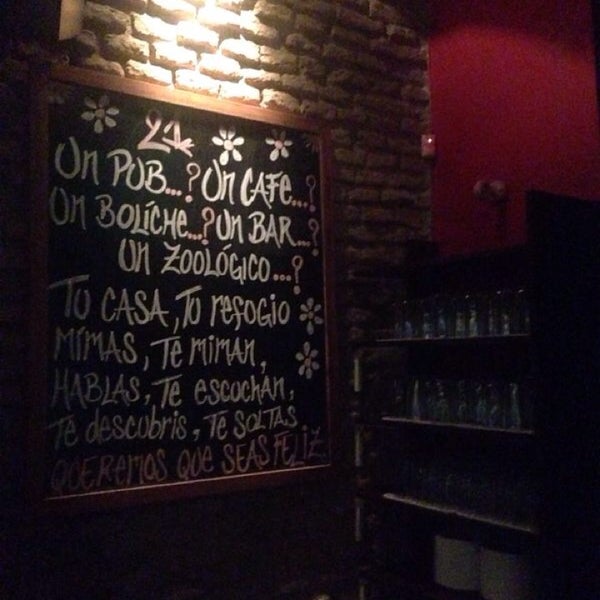 21
Un PUB...? Un CAFE...?
Un BOLÍCHE...? Un BAR...?
Un ZOOLÓGICO...?
TU CASA, TU refogio
MÍMAS, Te miman,
HABLAS, Te escochan,
Te descubris, Te SOLTAS
QUEREMOS QUE SEAS FELIZ.